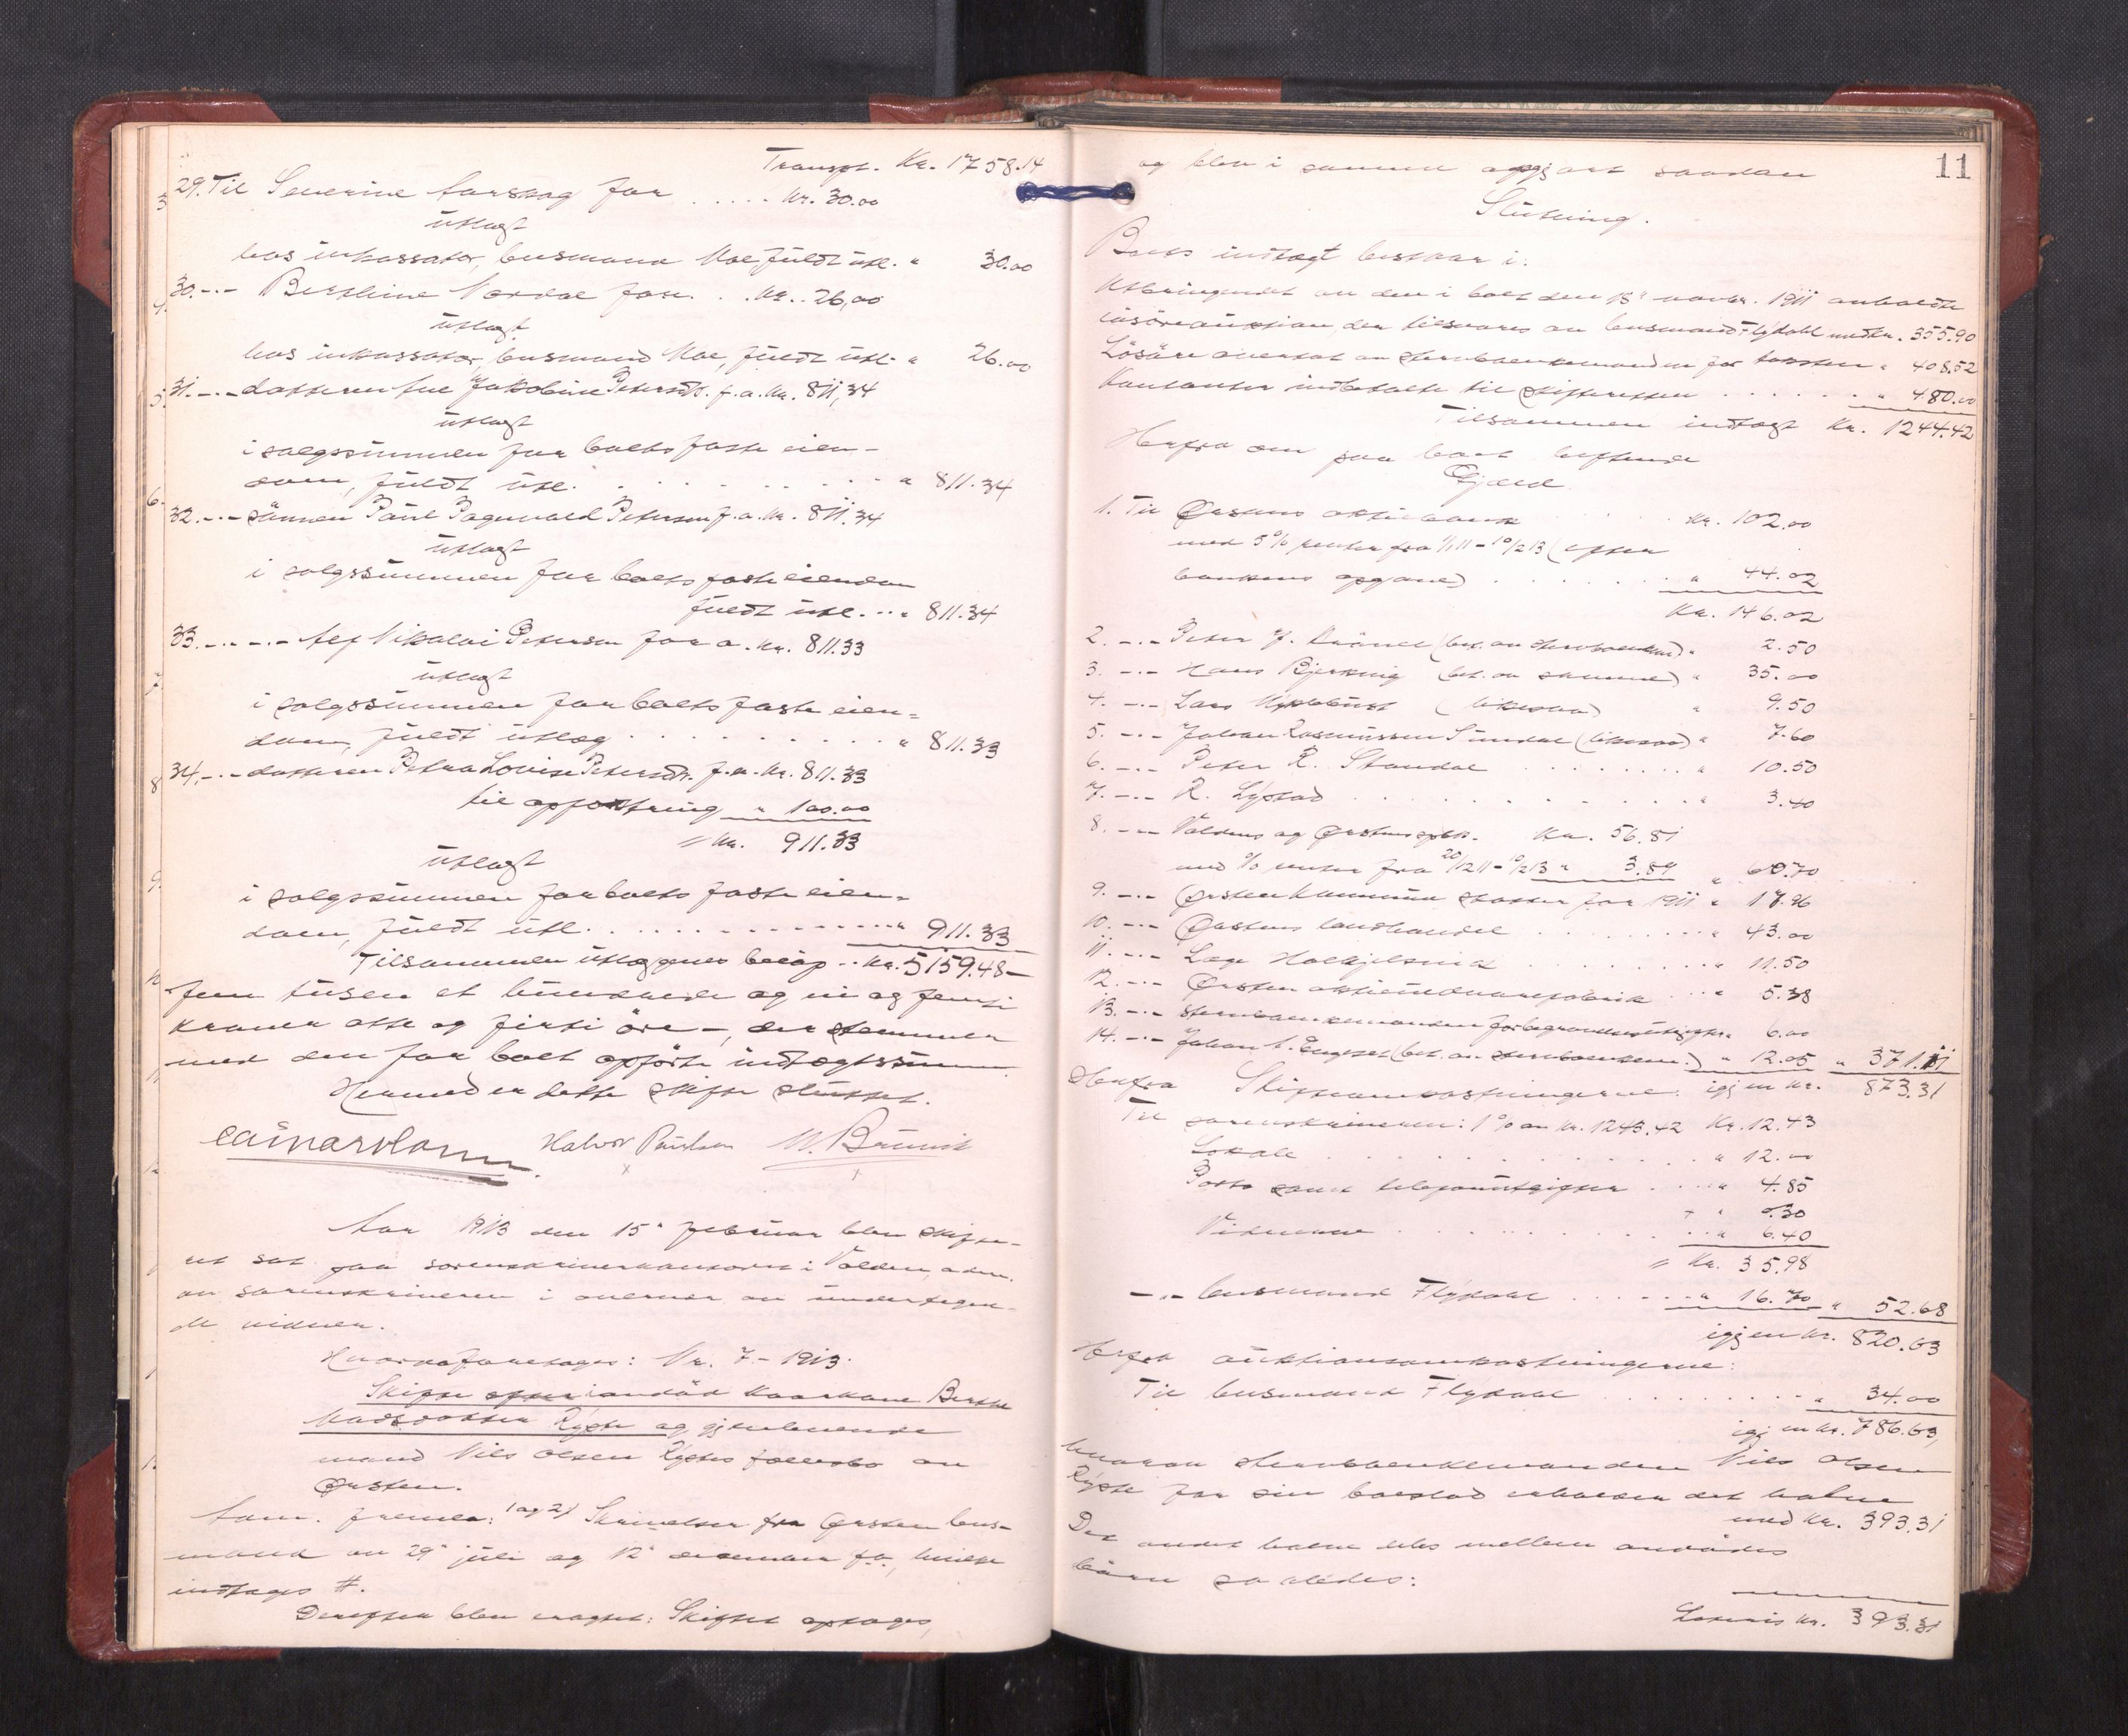 Transpt. Kr. 1758.14
29. Til Severine Aarskog for ..... Kr. 30.00
utlagt
hos inkassator, lensmand Moe fuldt utl. " 30.00
30. -"- Berthine Nordal for . . Kr. 26,00
utlagt
hos inkassator, lensmand Moe, fuldt utl. " 26.00
31. -"- datteren Jakobine Petersdt. f. a. Kr. 811,34
utlagt
i salgssummen for boets faste eien-
dom, fuldt utl. . . . . . . . . " 811.34
32. -"- sönnen Paul Ragnvald Petersen f. a. Kr. 811.34
utlagt
i salgssummen for boets faste eiendom
fuldt utl. ... " 811.34
33. -"- -"- Alf Nikolai Petersen for a. Kr. 811.33
utlagt
i salgssummen for boets faste eien-
dom, fuldt utlæg . . . . . . . . " 811.33
34. -"- datteren Petra Lovise Petersdt. f. a. Kr. 811.33
til opfostring " 100.00
= Kr. 911.33
utlagt
i salgssummen for boets faste eien-
dom, fuldt utl. . . . . . . . . " 911.33
Tilsammen utlæggenes belöp .. Kr. 5159.48 -
fem tusen et hundrede og ni og femti
kroner otte og firti öre -, der stemmer
med den for boet opförte indtægtssum.
Hermed er dette skifte sluttet.
Halvor Paulsen
Aar 1913 den 15de februar blev skifte-
ret sat paa sorenskriverkontoret i Volden, adm.
av sorenskriveren i overvær av undertegne-
de vidner.
Hvorda foretoges: Nr. 7 - 1913.
Skifte efter avdöd kaarkone Berthe
Madsdatter Ryste og gjenlevende
mand Nils Olsen Rystes fællesbo av
Örsten.
Adm. fremla: 1 og 2) Skrivelser fra Örsten lens-
mand av 29de juli og 12te december f.a., hvilke
indtages #.
Derefter blev eragtet: Skiftet optages,
11
og blev i samme opgjort saadan
Slutning.
Boets indtægt bestaar i:
Utbringendet av den i boet den 13de novbr. 1911 avholdte
lösöreauktion, der tilsvares av lensmand Flydahl med Kr. 355.90
Lösöre overtat av stervboenkemanden for taksten " 408.52
Kontanter indbetalte til skifteretten . . . . . " 480.00
Tilsammen indtægt Kr. 1244.42
Herfra den paa boet heftende
Gjæld
1. Til Örstens aktiebank . . . Kr. 102.00
med 5% renter fra 1/1 11 - 10/2 13 (efter
bankens opgave) . . . . . . . " 44.02
Kr. 146.02
2. -"- Peter J. (bet. av stervboenkem) " 2.50
3. -"- Hans Bjerknæs (bet. av samme) " 35.00
4. -"- Lars Myklebust (likesaa) " 9.50
5. -"- Johan Rasmussen Sundal (likesaa) " 7.60
6. -"- Peter R. Standal . . . . . . " 10.50
7. -"- R. Lystad . . . . . . . . " 3.40
8. -"- Voldens og Örstens spbk. Kr. 56.81
med % renter fra 20/12 11 - 10/2 13 " 3.89 " 60.70
9. -"- Örsten kommune skatter for 1911 " 17.96
10. -"- Örstens landhandel . . . . . . " 43.00
11. -"- Læge . . . . . " 11.50
12. -"- Örsten aktieuldvarefabrik . . . " 5.38
13. -"- stervboenkemanden for begravelsesutgifter 6.00
14. -"- Johan A. Engeset (bet. av stervboenkem.) " 12.05 " 371.11
igjen Kr. 873.31
Herfra Skifteomkostningerne:
Til sorenskriveren: 1% av Kr. 1243.42 Kr. 12.43
Lokale . . . . . . . . . " 12.00
Porto samt telefonutgifter . . . " 4.85
+ " 0.30
Vidnerne . . . . . . . . " 6.40
= Kr. 35.98
-"- lensmand Flydahl . . . . . " 16.70 " 52.68
igjen Kr. 820.63
Herfra auktionsomkostningerne:
Til lensmand Flydahl . . . . . . . " 34.00
igjen Kr. 786.63,
hvorav stervboenkemanden Nils Olsen
Ryste for sin boeslod erholder det halve
med Kr. 393.31
Det andet halve deles mellem avdödes
börn saaledes:
Lateris Kr. 393.31